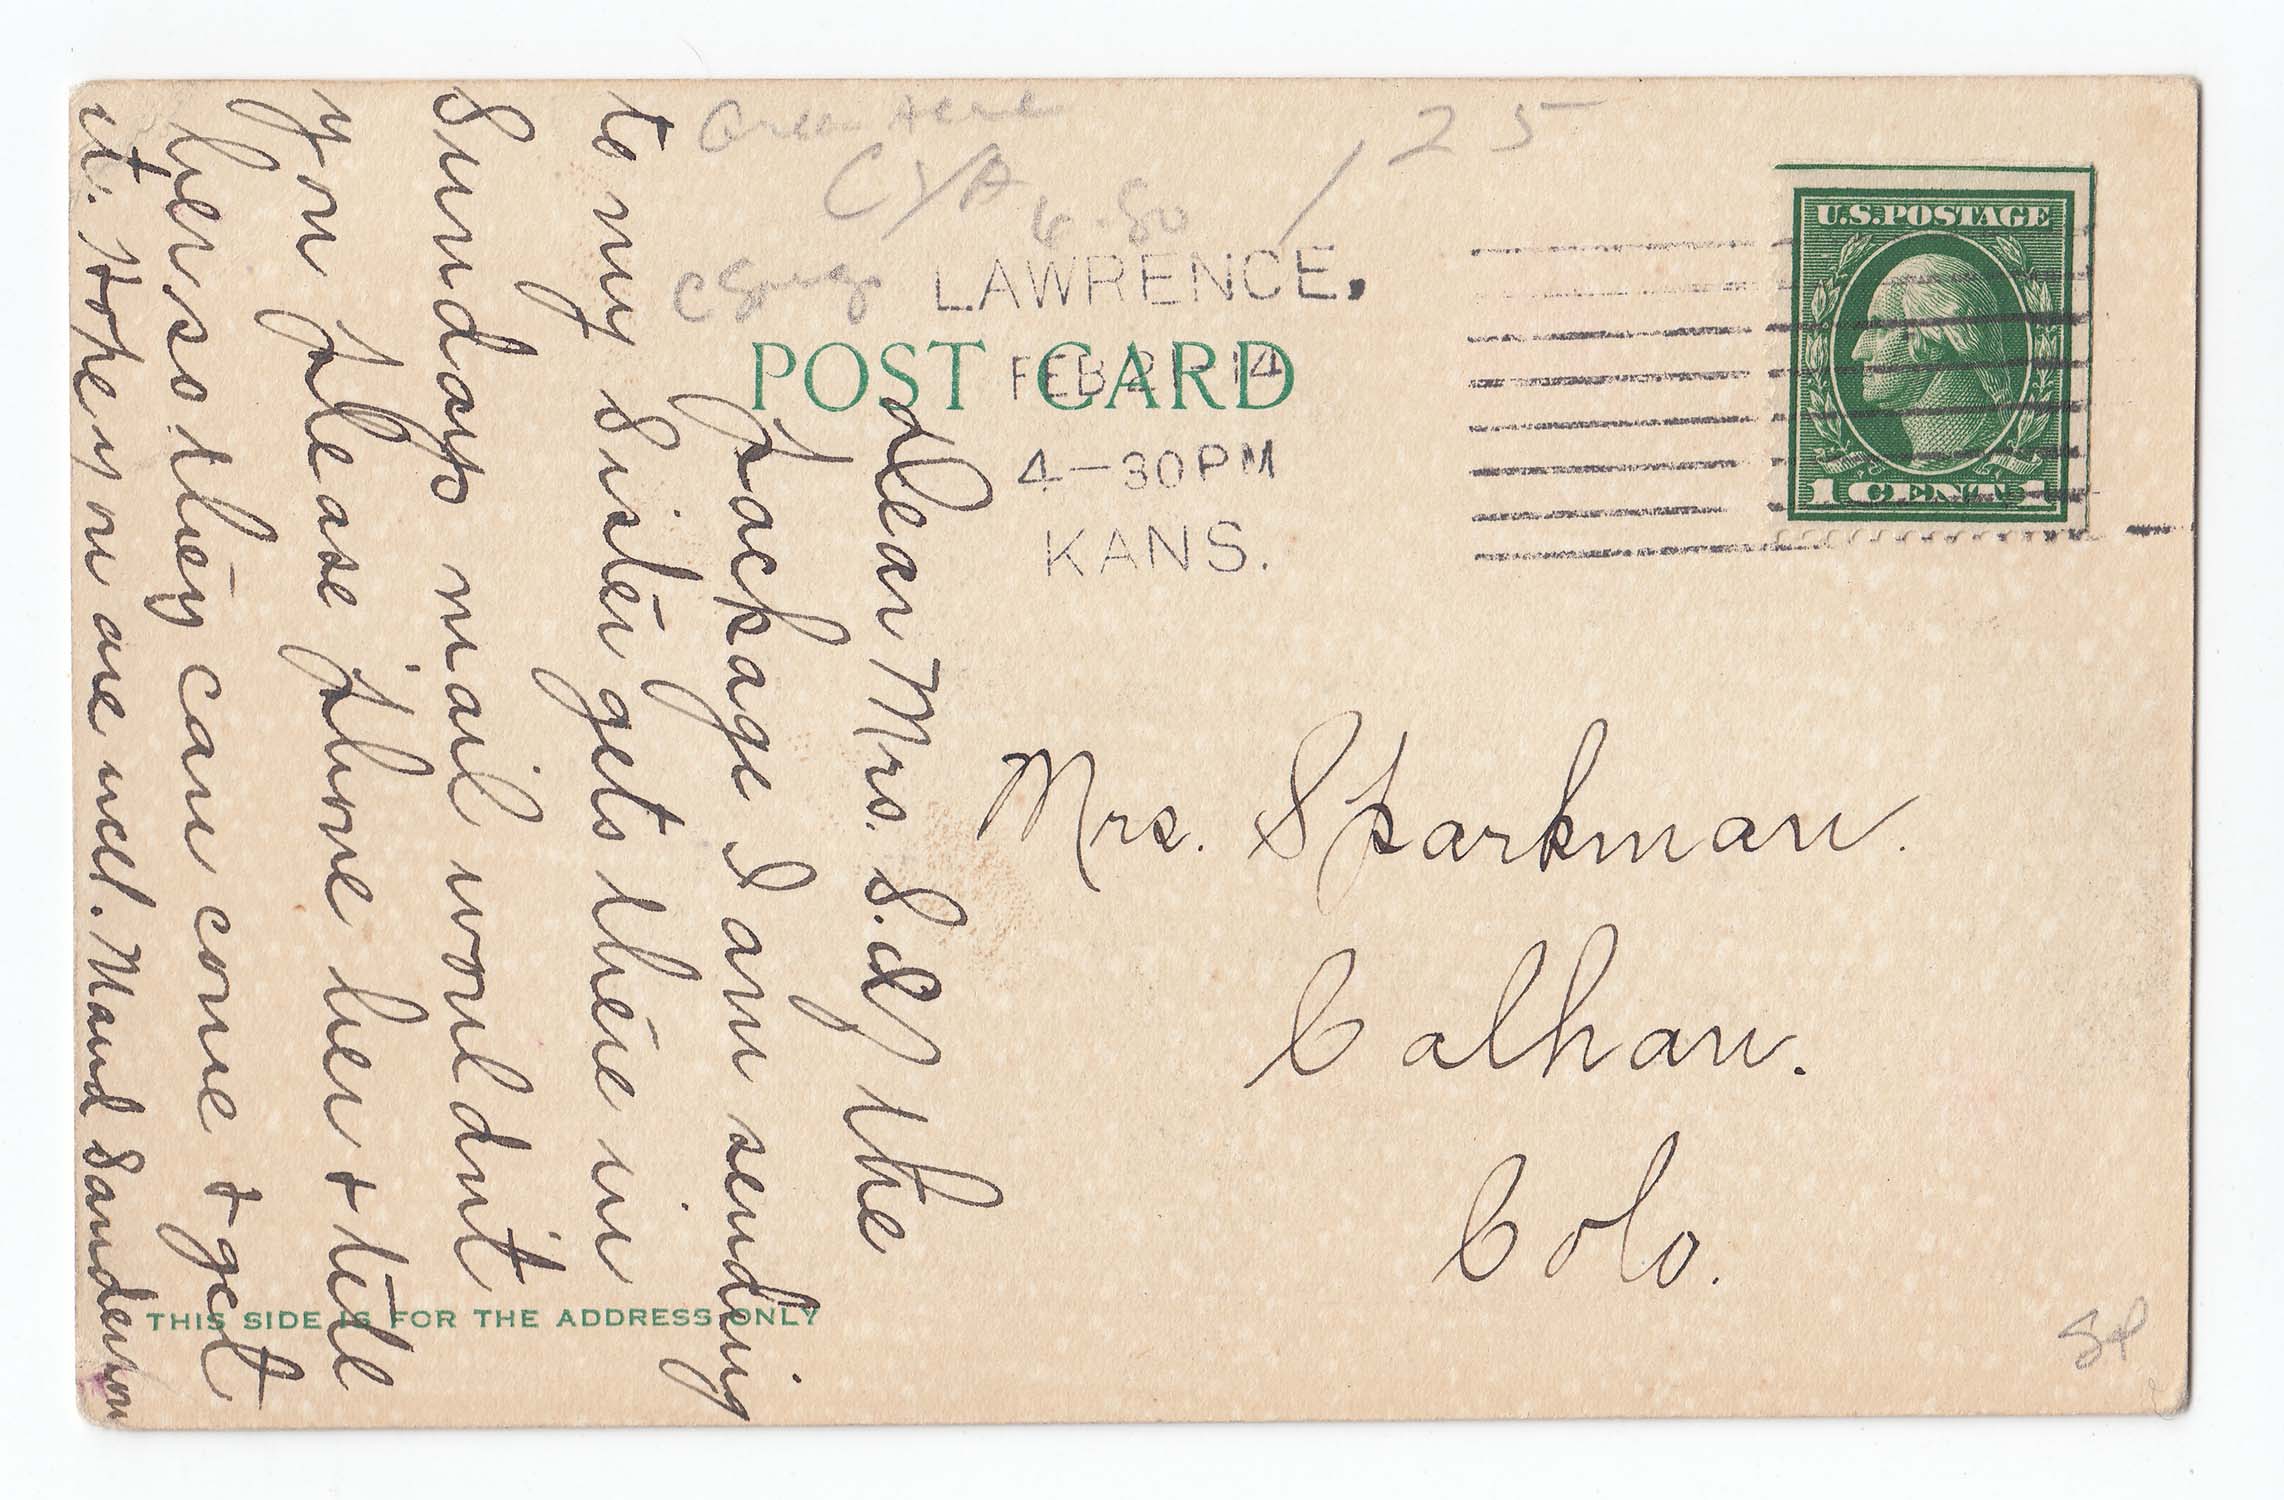 Green Acre
CYA
125
C Springs
LAWRENCE,
FEB 21 14
4-30PM
KANS.
U.S.POSTAGE
1 CENT 1
POST CARD
Dear Mrs. S. If the
package I am sending
to my sister gets there in
Sundays mail wouldnt
you please phone her + tell
her so they can come + get
it. Hope you are well. Maud Sanderson
Mrs. Sparkman.
Calhan.
Colo.
THIS SIDE IS FOR THE ADDRESS ONLY